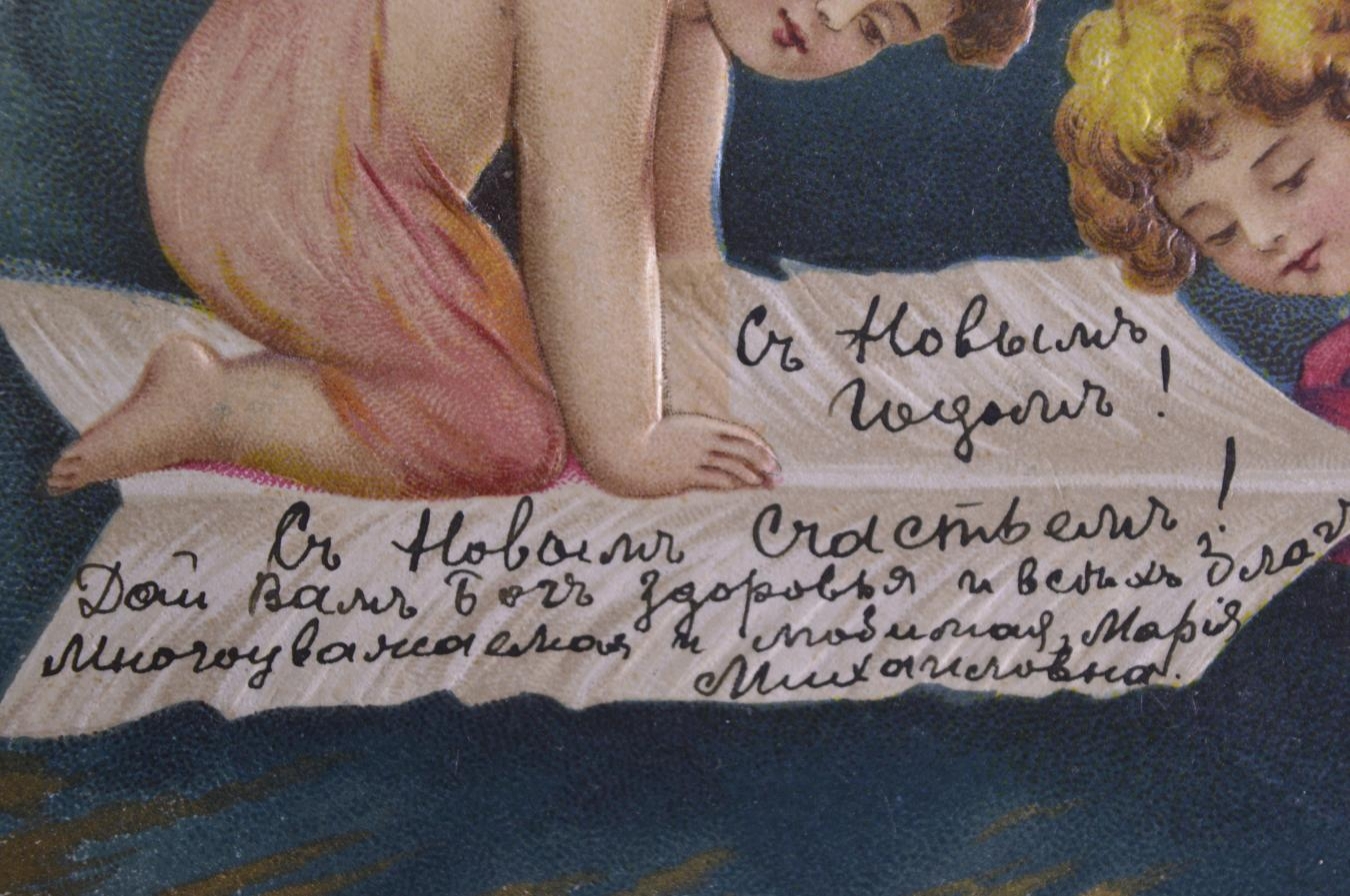 Съ Новымъ
Годомъ!
Съ Новымъ Счастьемъ!
Дай Вамъ Богъ здоровья и всѣхъ благъ
Многоуважаемая и любимая, Марія
Михаиловна.